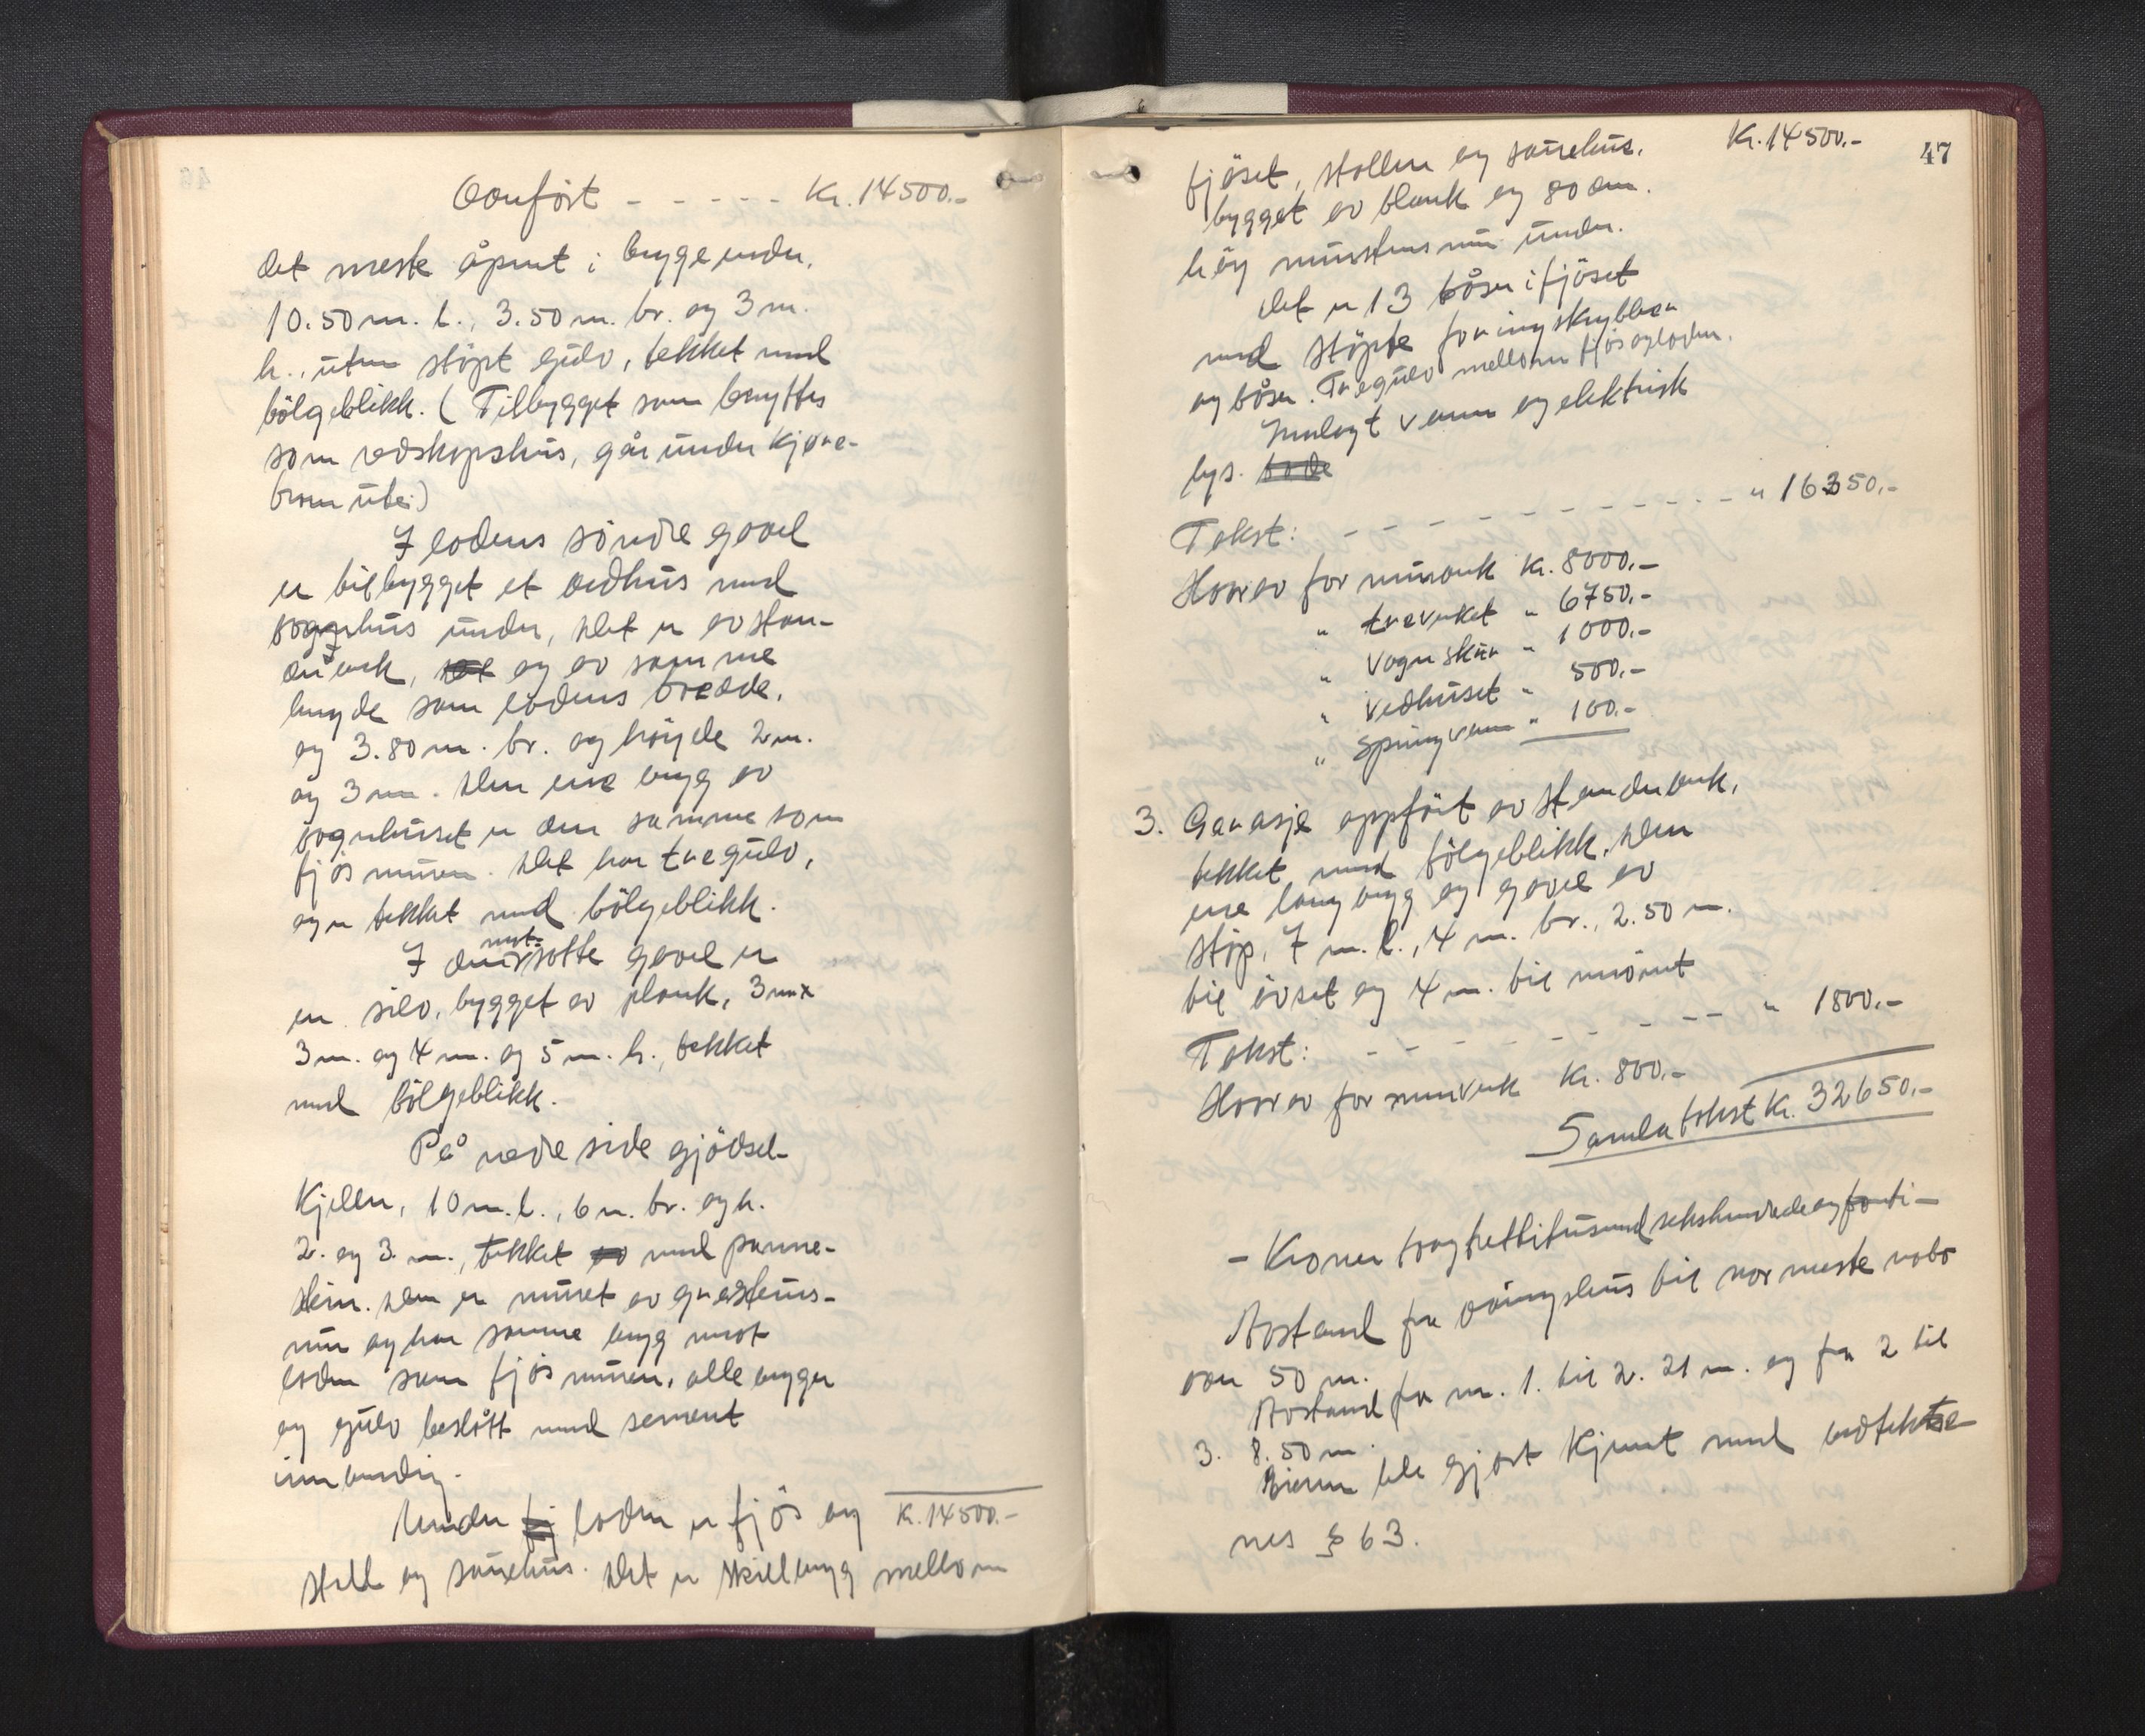 Overført - - - - - Kr. 14500.-
det meste åpent i begge ender,
10.50 m. l., 3.50 m. br. og 3 m.
h., uten støpt gulv, tekket med
bölgeblikk. (Tilbygget som benyttes
som redskapshus, går under kjøre-
broen ute.)
I lødens söndre gavl
er tilbygget et vedhus med
vognhus under, det er av stan-
derverk, og av samme
lengde som lødens bredde,
og 3.80 m. br. og höyde 2 m.
og 3 m. Den ene vegg av
vognhuset er den samme som
fjösmuren. Det har tregulv,
og er tekket med bölgeblikk.
I den motsatte gavl er
en silo, bygget av plank, 3 m x
3 m. og 4 m. og 5 m. h., tekket
med bölgeblikk.
På nedre side gjödsel-
kjeller, 10 m. l., 6 m. br. og h.
2. og 3 m., tekket med panne-
stein. Den er muret av gråsteins-
mur og har samme vegg mot
løden som fjösmuren, alle vegger
og gulv beslått med sement
innvendig.
Under løden er fjös og Kr. 14500.-
stall og sauehus. Det er skillevegg mellom
47
Kr. 14500.-
fjöset, stallen og sauehus,
bygget av plank og 80 cm.
höy murstensmur under.
Det er 13 båser i fjöset
med støpte foringskrybber
og båser. Tregulv mellom fjös og løden.
Innlagt vann og elektrisk
lys.
Takst: - - - - - - - - - - " 16350.-
Herav for murverk Kr. 8000.-
" treverket " 6750.-
" Vognskur " 1000.-
" Vedhuset " 500.-
" Springvann " 100.-
3. Garasje oppfört av standerverk,
tekket med bölgeblikk. Den
ene langvegg og gavl av
støp, 7 m. l., 4 m. br., 2.50 m.
til övset og 4 m. til mönet
Takst: - - - - - - - - - " 1800.-
Herav for murverk Kr. 800.-
Samla takst Kr. 32650.-
- Kroner toogtrettitusendsekshundredeogfemti -
Avstand fra våningshus til nærmeste nabo
over 50 m.
Avstand fra nr. 1. til 2. 21 m. og fra 2 til
3. 8.50 m.
Eieren ble gjort kjent med vedtekte
nes § 63.